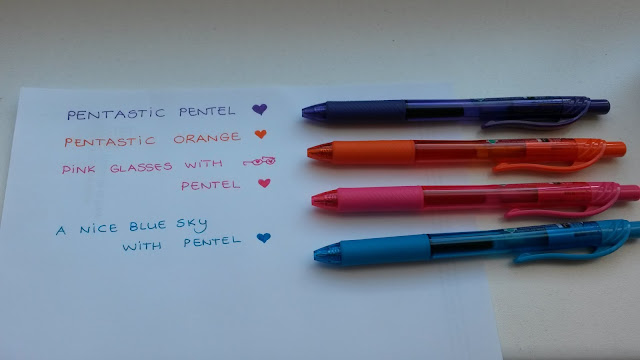 PENTASTIC PENTEL
PENTASTIC ORANGE
PINK GLASSES WITH
PENTEL
A NICE BLUE SKY
WITH PENTEL